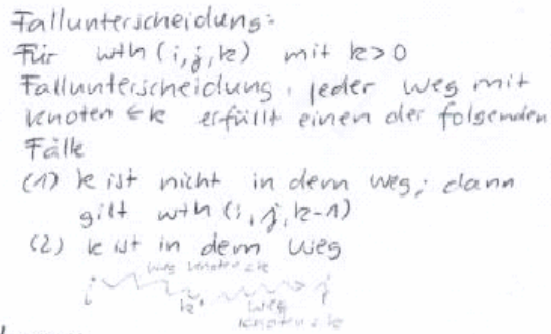 Fallunterscheidung:
Für wth (i,j,k) mit k>0
Fallunterscheidung, jeder Weg mit
Knoten ≤k erfüllt einen der folgenden
Fälle
(1) k ist nicht in dem Weg; dann
gilt wth (i,j,k-1)
(2) k ist in dem Weg
Weg Knoten <k
i k j
Weg
Knoten <k